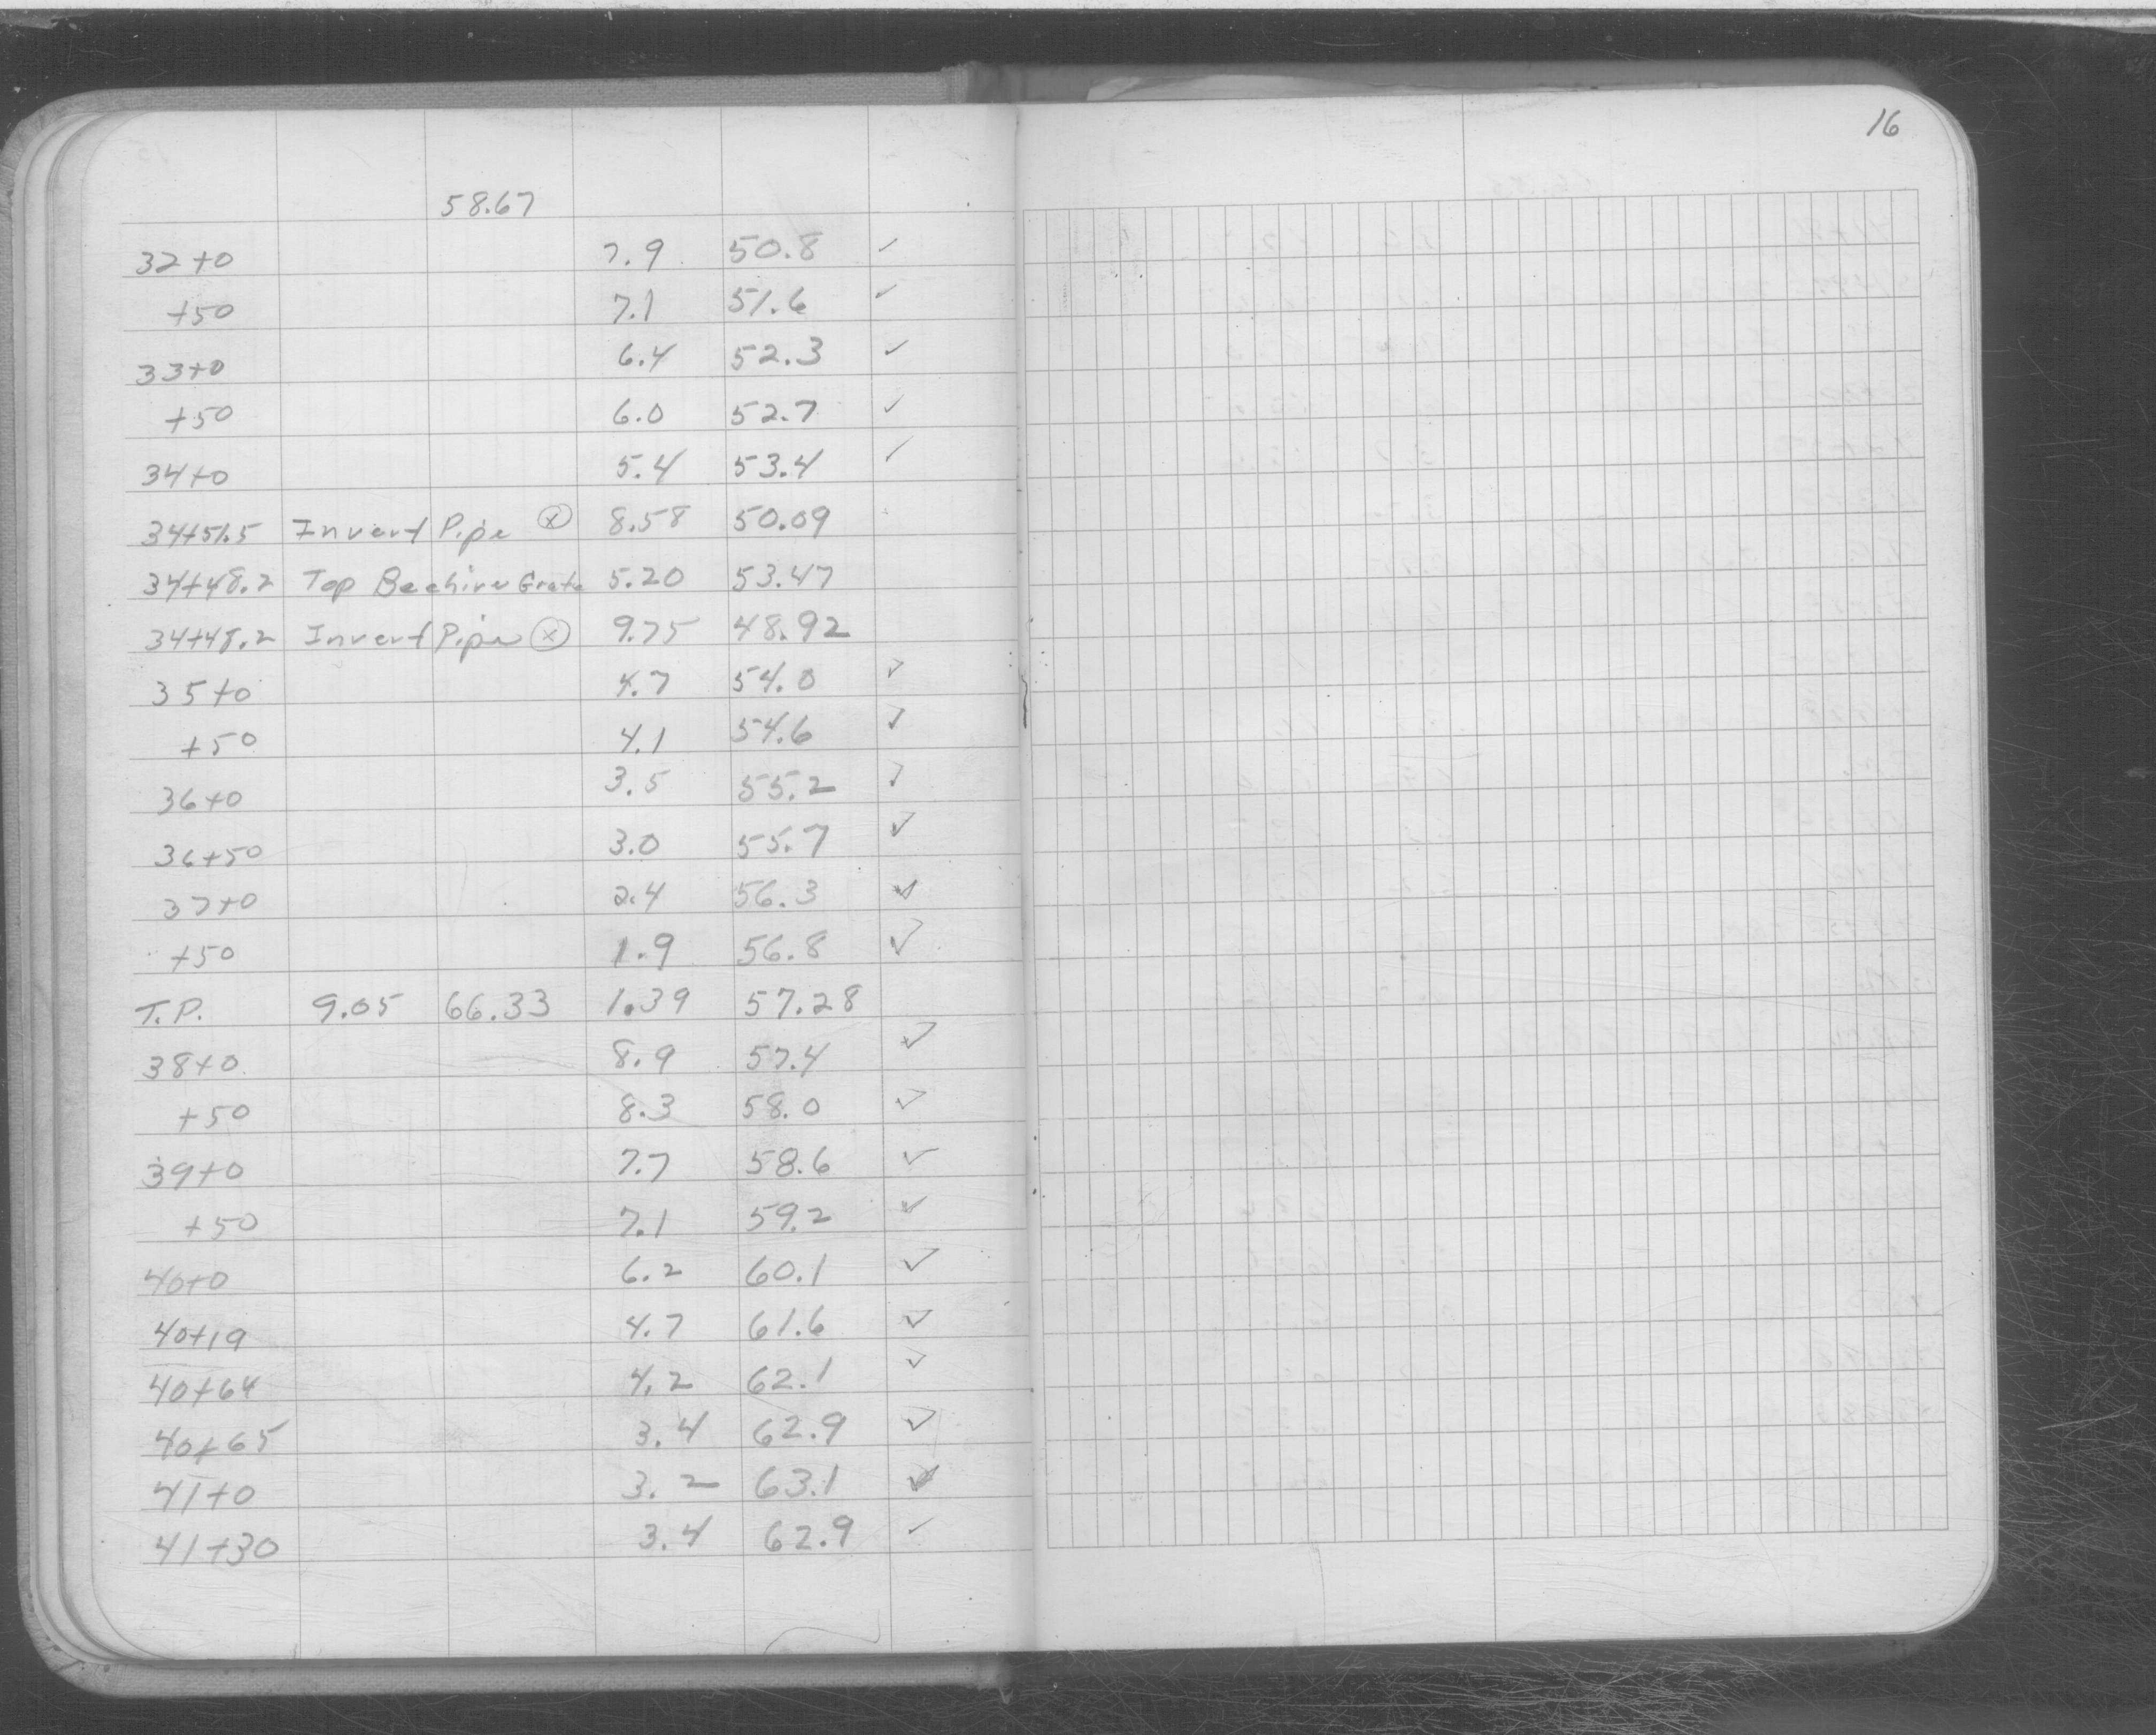 16
58.67
32+0 7.9 50.8 ✓
+50 7.1 51.6 ✓
33+0 6.4 52.3 ✓
+50 6.0 52.7 ✓
34+0 5.4 53.4 ✓
34+51.5 Invert Pipe ⓧ 8.58 50.09
34+48.2 Top Beehive Grate 5.20 53.47
34+48.2 Invert Pipe ⓧ 9.75 48.92
35+0 4.7 54.0 ✓
+50 4.1 54.6 ✓
36+0 3.5 55.2 ✓
36+50 3.0 55.7 ✓
37+0 2.4 56.3 ✓
+50 1.9 56.8 ✓
T.P. 9.05 66.33 1.39 57.28
38+0 8.9 57.4 ✓
+50 8.3 58.0 ✓
39+0 7.7 58.6 ✓
+50 7.1 59.2 ✓
40+0 6.2 60.1 ✓
40+19 4.7 61.6 ✓
40+64 4.2 62.1 ✓
40+65 3.4 62.9 ✓
41+0 3.2 63.1 ✓
41+30 3.4 62.9 ✓